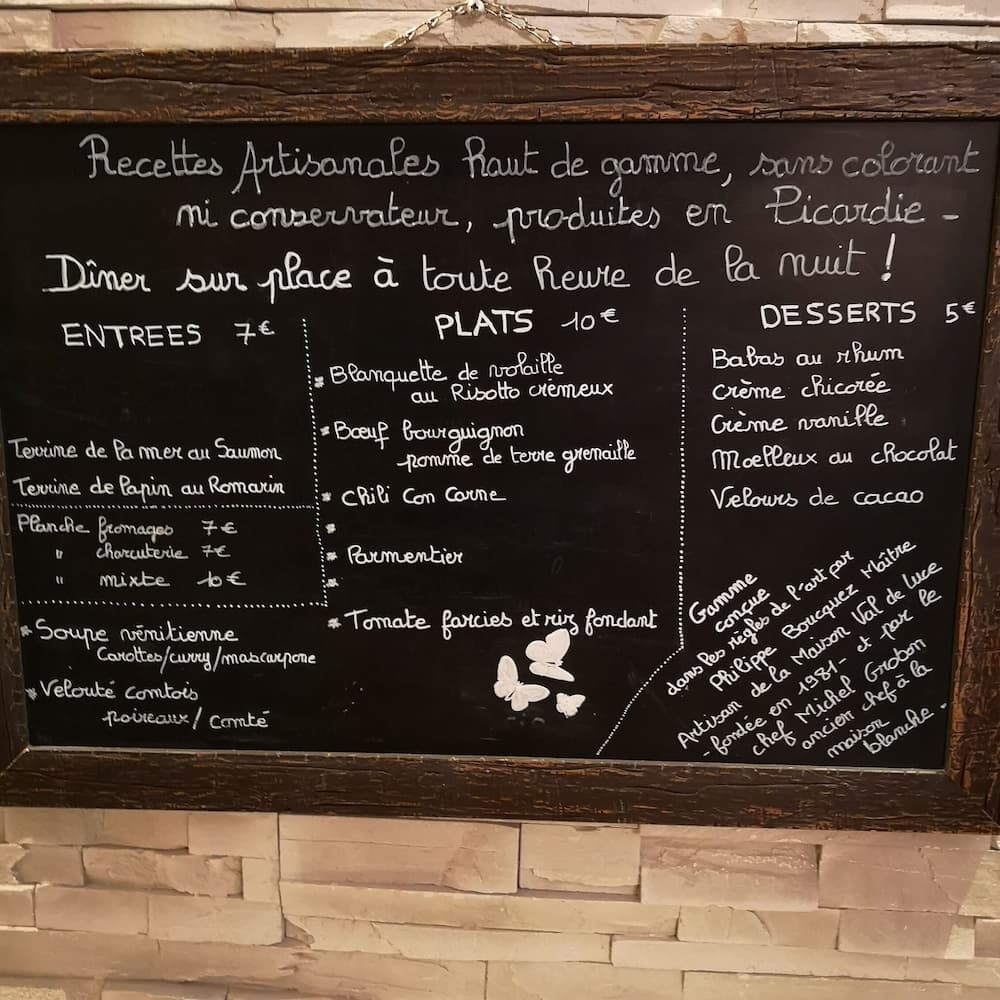 Recettes Artisanales haut de gamme, sans colorant
ni conservateur, produites en Picardie -
Dîner sur place à toute heure de la nuit !
ENTREES 7€
Terrine de la mer au Saumon
Terrine de lapin au Romarin
Planche fromages 7€
" charcuterie 7€
" mixte 10€
* Soupe vénitienne
Carottes/curry/mascarpone
* Velouté comtois
poireaux/Comté
PLATS 10€
* Blanquette de volaille
au Risotto crémeux
* Bœuf bourguignon
pomme de terre grenaille
* Chili Con Carne
*
* Parmentier
*
* Tomate farcies et riz fondant
DESSERTS 5€
Babas au rhum
Crème chicorée
Crème vanille
Moelleux au chocolat
Velours de cacao
Gamme
conçue
dans les règles de l'art par
Philippe Boucquez Maître
Artisan de la Maison Val de Luce
- fondée en 1981 - et par le
chef Michel Grobon
ancien chef à la
maison
blanche -